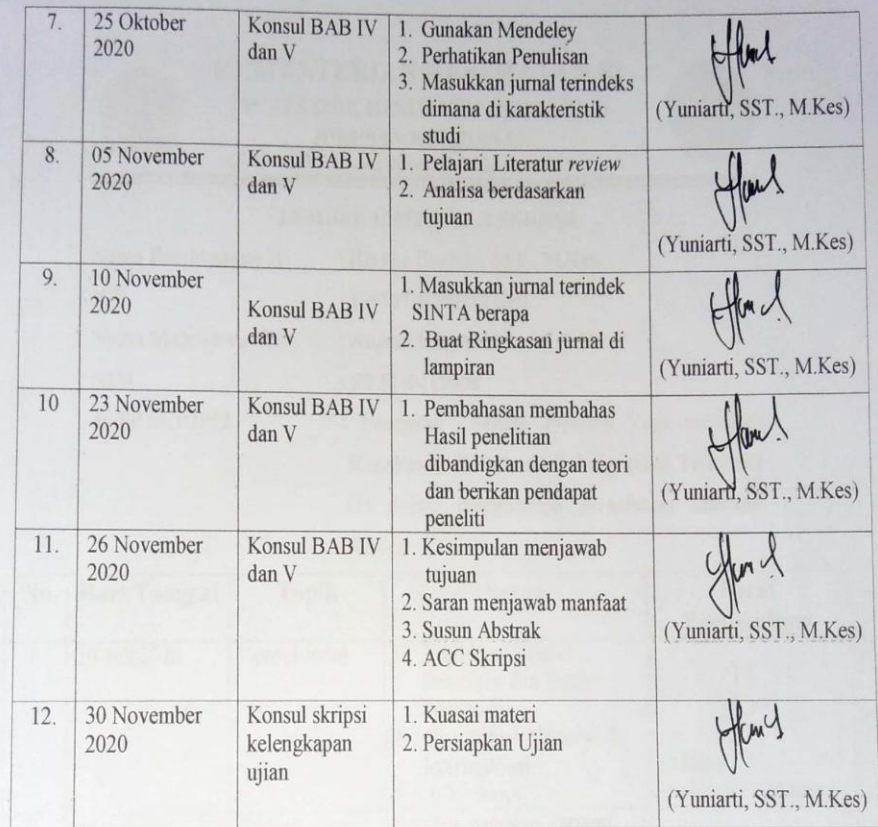 7. 25 Oktober 2020 Konsul BAB IV dan V
1. Gunakan Mendeley
2. Perhatikan Penulisan
3. Masukkan jurnal terindeks
dimana di karakteristik
studi
(Yuniarti, SST., M.Kes)
8. 05 November 2020 Konsul BAB IV dan V
1. Pelajari Literatur review
2. Analisa berdasarkan
tujuan
(Yuniarti, SST., M.Kes)
9. 10 November 2020 Konsul BAB IV dan V
1. Masukkan jurnal terindek
SINTA berapa
2. Buat Ringkasan jurnal di
lampiran
(Yuniarti, SST., M.Kes)
10 23 November 2020 Konsul BAB IV dan V
1. Pembahasan membahas
Hasil penelitian
dibandigkan dengan teori
dan berikan pendapat
peneliti
(Yuniarti, SST., M.Kes)
11. 26 November 2020 Konsul BAB IV dan V
1. Kesimpulan menjawab
tujuan
2. Saran menjawab manfaat
3. Susun Abstrak
4. ACC Skripsi
(Yuniarti, SST., M.Kes)
12. 30 November 2020 Konsul skripsi kelengkapan ujian
1. Kuasai materi
2. Persiapkan Ujian
(Yuniarti, SST., M.Kes)